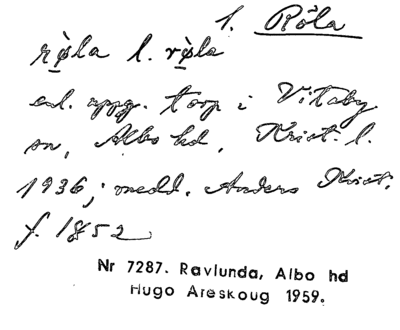 1. Röla
rø̣la l. rø̣la
enl. uppg. torp i Vitaby
sn, Albo hd, Krist. l.
1936; medd. Anders Krist.
f. 1852
Nr 7287. Ravlunda, Albo hd
Hugo Areskoug 1959.